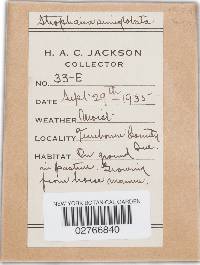 Stropharia semiglobata
H. A. C. JACKSON
COLLECTOR
NO. 33-E
DATE Sept. 29th - 1935
WEATHER Moist
LOCALITY Terrebonne County
Que.
HABITAT On ground
in pasture. Growing
from horse manure.
NEW YORK BOTANICAL GARDEN
02766840